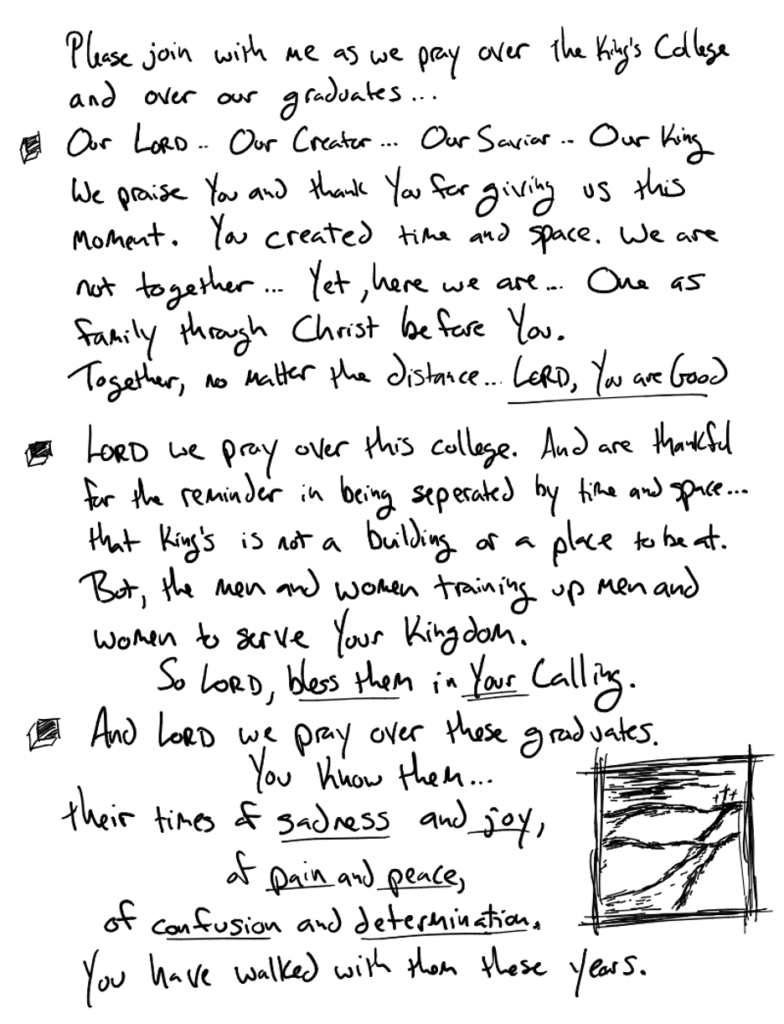 Please join with me as we pray over the King's College
and over our graduates...
Our LORD.. Our Creator... Our Savior.. Our King
We praise You and thank You for giving us this
moment. You created time and space. We are
not together... Yet, here we are... One as
family through Christ before You.
Together, no matter the distance... LORD, You are Good
LORD we pray over this college. And are thankful
for the reminder in being seperated by time and space...
that King's is not a building or a place to be at.
But, the men and women training up men and
women to serve Your Kingdom.
So LORD, bless them in Your Calling.
And LORD we pray over these graduates.
You know them...
their times of sadness and joy,
of pain and peace,
of confusion and determination.
You have walked with them these years.